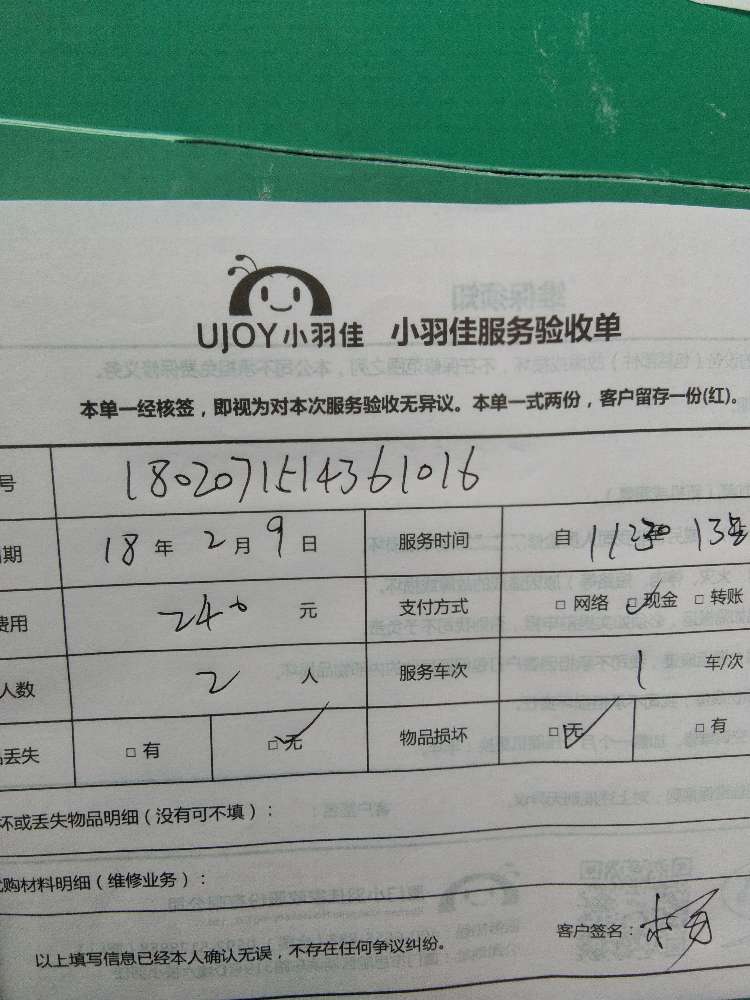 UJOY小羽佳 小羽佳服务验收单
本单一经核签，即视为对本次服务验收无异议。本单一式两份，客户留存一份(红)。
号 1802071514361016
期 18 年 2 月 9 日 服务时间 自 11:30 13
费用 240 元 支付方式 □ 网络 □ 现金 □ 转账
人数 2 人 服务车次 1 车/次
丢失 □ 有 □ 无 物品损坏 □ 无 □ 有
坏或丢失物品明细（没有可不填）：
购材料明细（维修业务）：
以上填写信息已经本人确认无误，不存在任何争议纠纷。 客户签名：